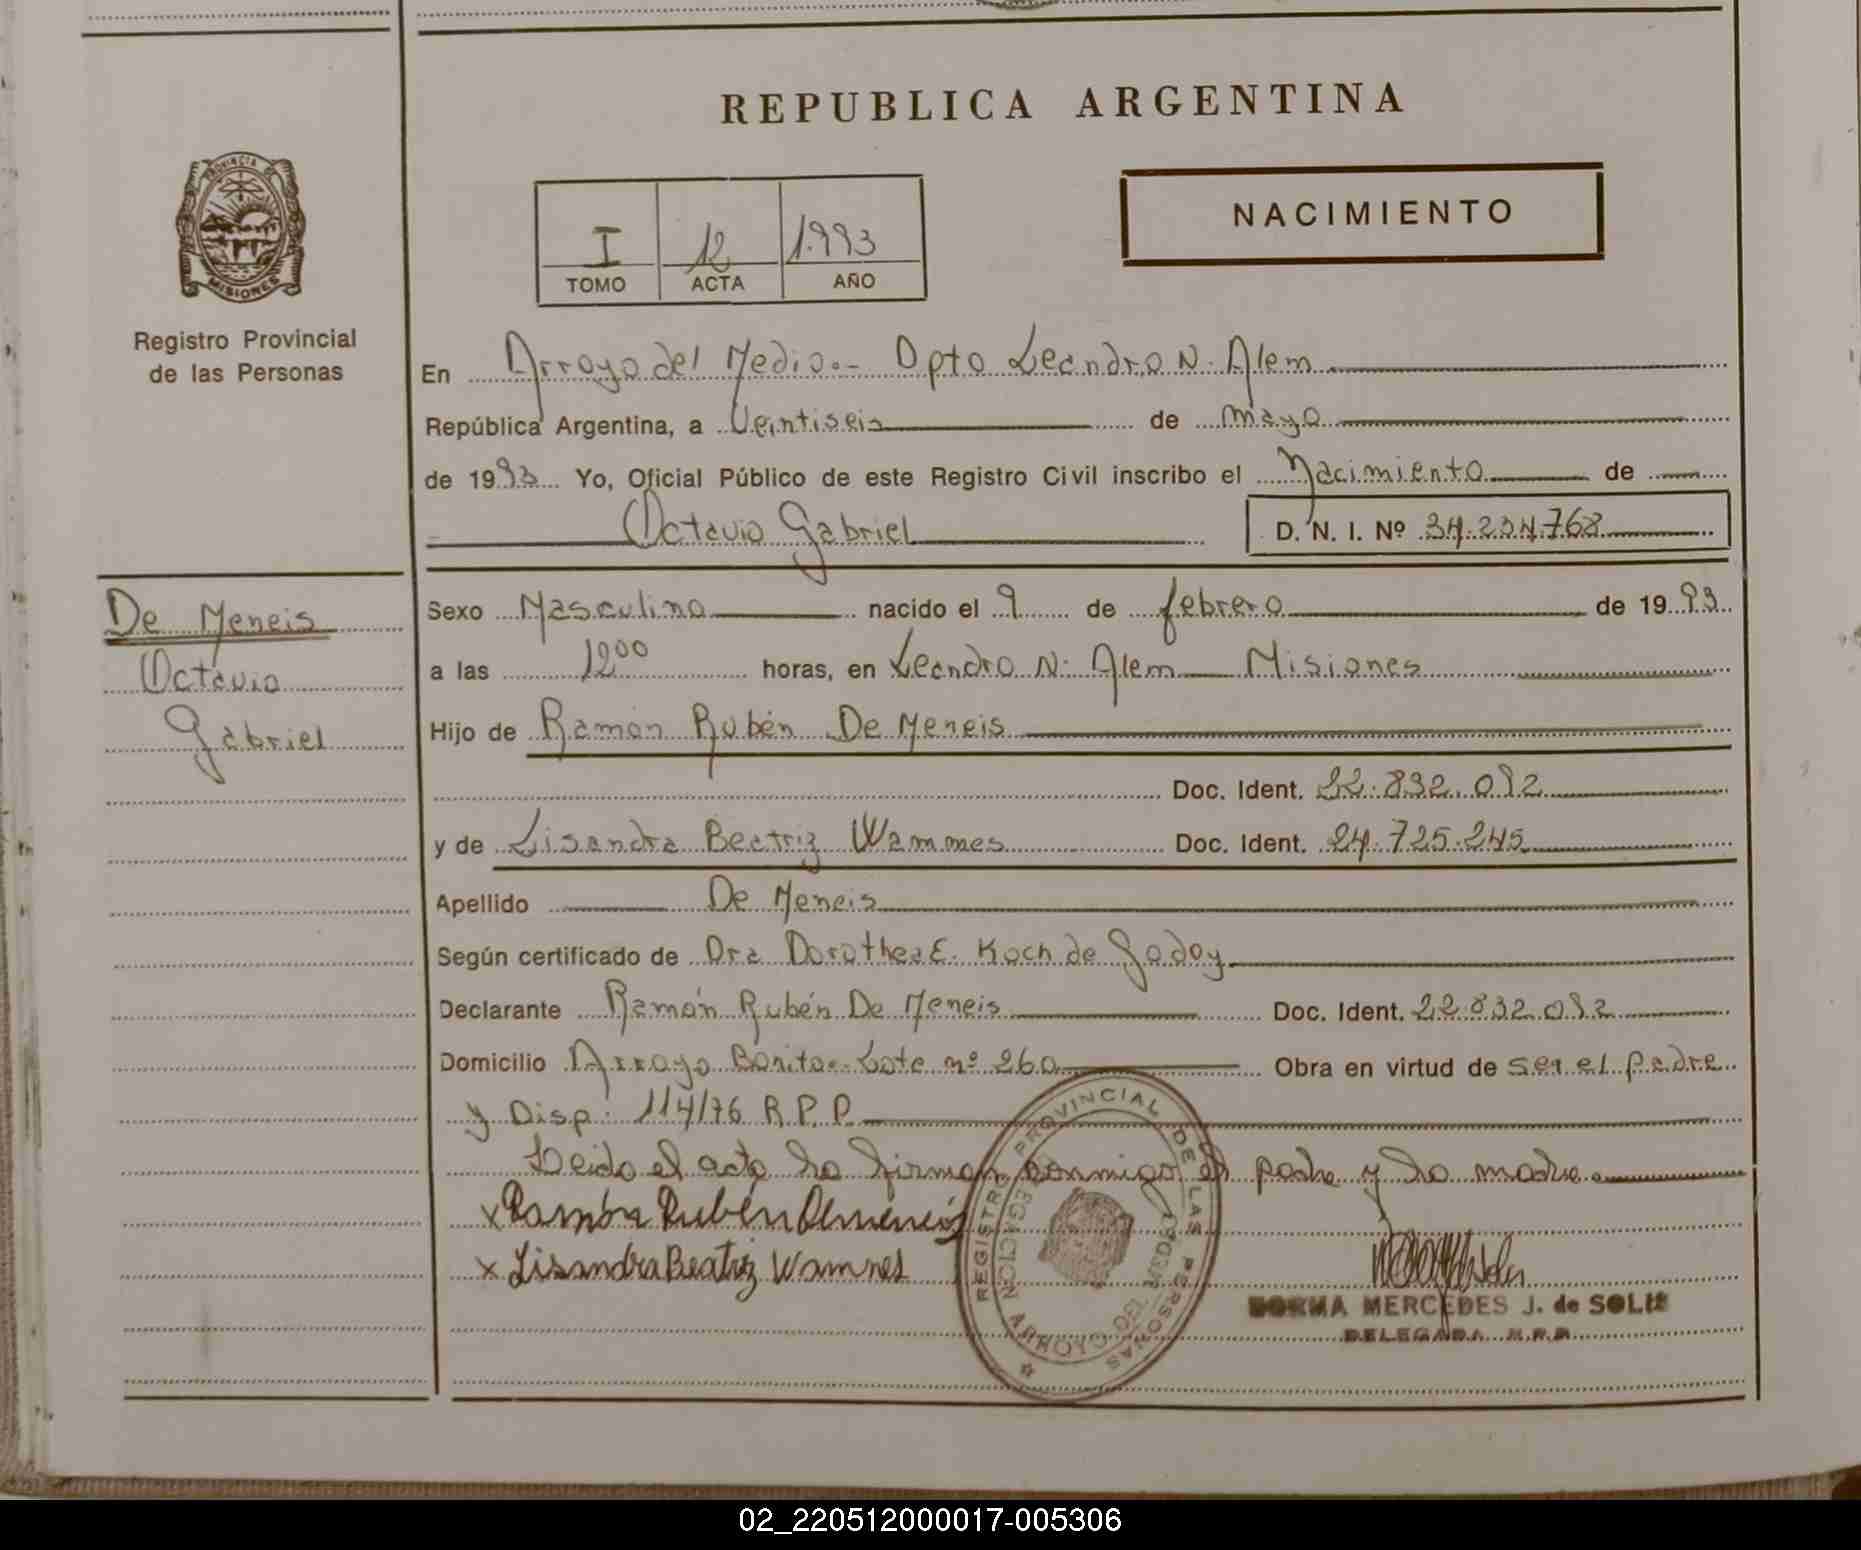 REPUBLICA ARGENTINA
PROVINCIA DE
MISIONES
Registro Provincial
de las Personas
I 12 1.993
TOMO ACTA AÑO
NACIMIENTO
En Arroyo del Medio.- Dpto Leandro N. Alem
República Argentina, a Veintiseis de mayo
de 1993 Yo, Oficial Público de este Registro Civil inscribo el Nacimiento de
Octavio Gabriel D. N. I. Nº 34.234.768
De Meneis
Octavio
Gabriel
Sexo Masculino nacido el 9 de febrero de 1993
a las 12 00 horas, en Leandro N. Alem Misiones
Hijo de Ramón Rubén De Meneis
Doc. Ident. 22.832.092
y de Lisandra Beatriz Wammes Doc. Ident. 24.725.245
Apellido De Meneis
Según certificado de Dra Dorothea E. Koch de Godoy
Declarante Ramón Rubén De Meneis Doc. Ident. 22.832.092
Domicilio Arroyo Bonito.- Lote nº 260 Obra en virtud de ser el padre
y Disp. 114/76 R.P.P.
Leido el acta la firman conmigo el padre y la madre
x Ramón Rubén Demeneis
x Lisandra Beatriz Wammes
REGISTRO PROVINCIAL DE LAS PERSONAS
ARROYO DEL MEDIO
NORMA MERCEDES J. de SOLIS
DELEGADA R.P.P.
02_220512000017-005306